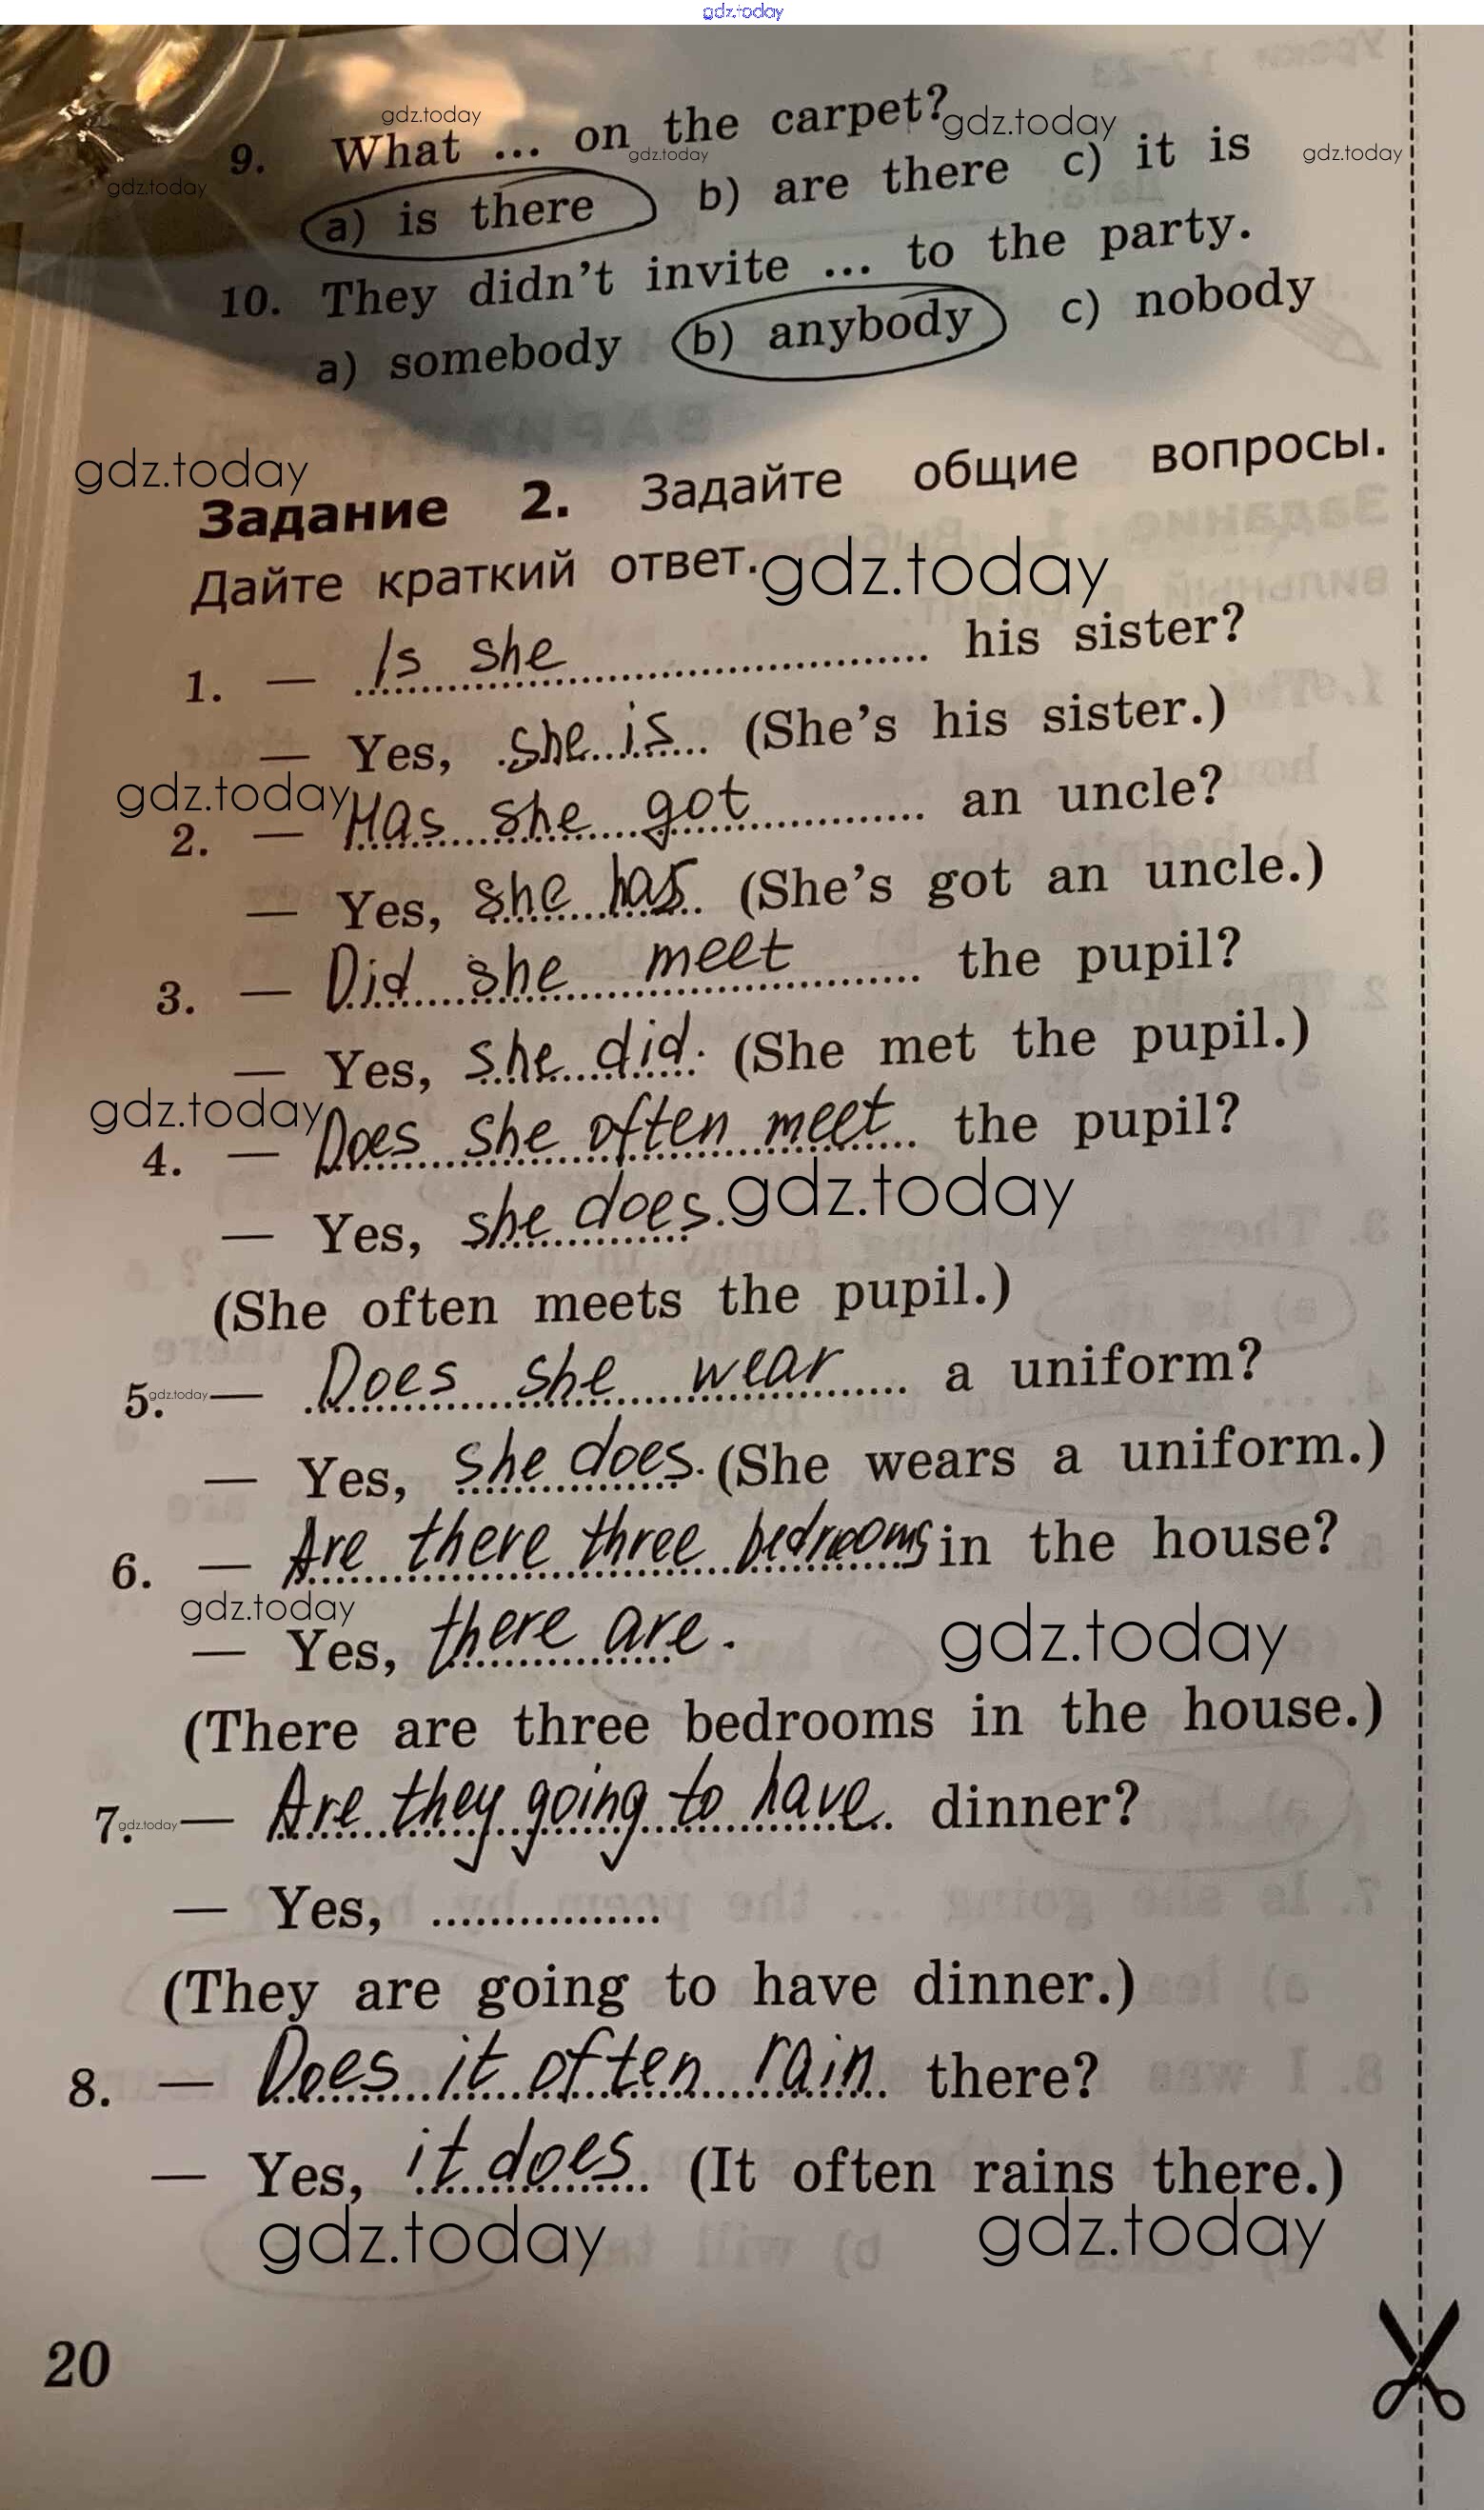 gdz.today
9. What ... on the carpet?
a) is there b) are there c) it is
10. They didn't invite ... to the party.
a) somebody b) anybody c) nobody
Задание 2. Задайте общие вопросы.
Дайте краткий ответ.
1. — Is she his sister?
— Yes, she is (She's his sister.)
2. — Has she got an uncle?
— Yes, she has (She's got an uncle.)
3. — Did she meet the pupil?
— Yes, she did. (She met the pupil.)
4. — Does she often meet the pupil?
— Yes, she does.
(She often meets the pupil.)
5. — Does she wear a uniform?
— Yes, she does. (She wears a uniform.)
6. — Are there three bedrooms in the house?
— Yes, there are.
(There are three bedrooms in the house.)
7. — Are they going to have dinner?
— Yes, ................
(They are going to have dinner.)
8. — Does it often rain there?
— Yes, it does (It often rains there.)
20